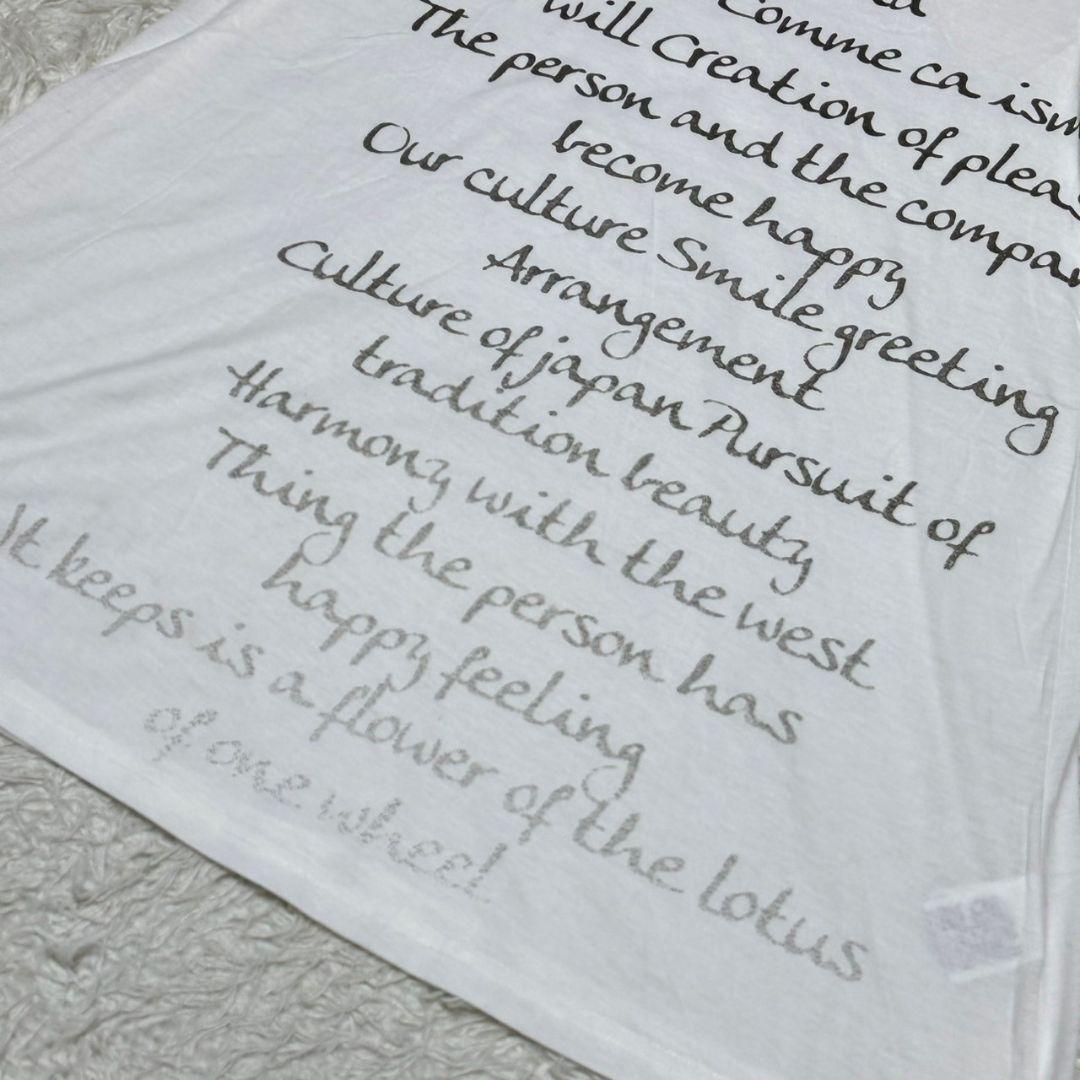 Comme ca ism
will Creation of pleas
The person and the compan
become happy
Our culture Smile greeting
Arrangement
Culture of japan Pursuit of
tradition beauty
Harmony with the west
Thing the person has
happy feeling
It keeps is a flower of the lotus
of one wheel